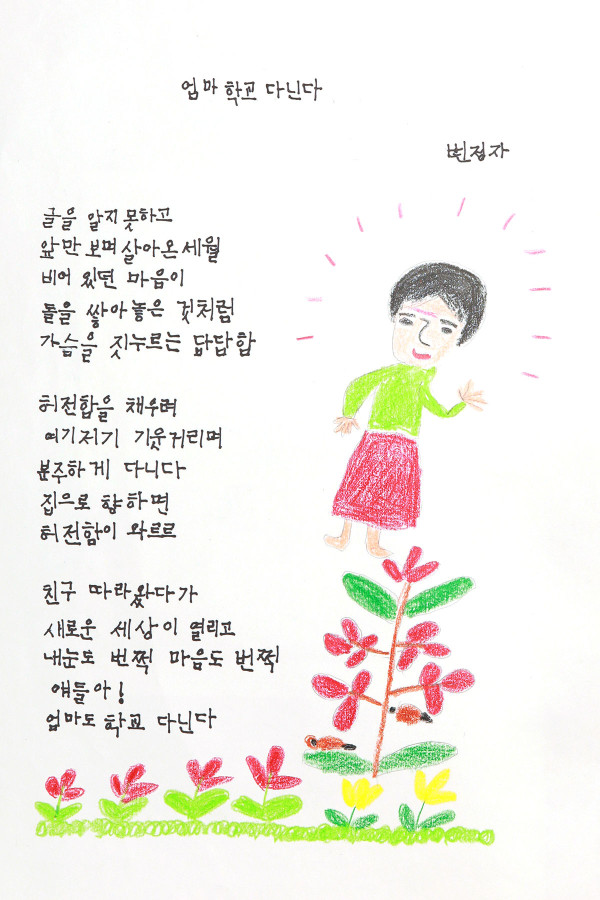 엄마 학교 다닌다
변점자
글을 알지 못하고
앞만 보며 살아온 세월
비어 있던 마음이
돌을 쌓아 놓은 것처럼
가슴을 짓누르는 답답함
허전함을 채우려
여기저기 기웃거리며
분주하게 다니다
집으로 향하면
허전함이 와르르
친구 따라 왔다가
새로운 세상이 열리고
내눈도 번쩍 마음도 번쩍
얘들아!
엄마도 학교 다닌다